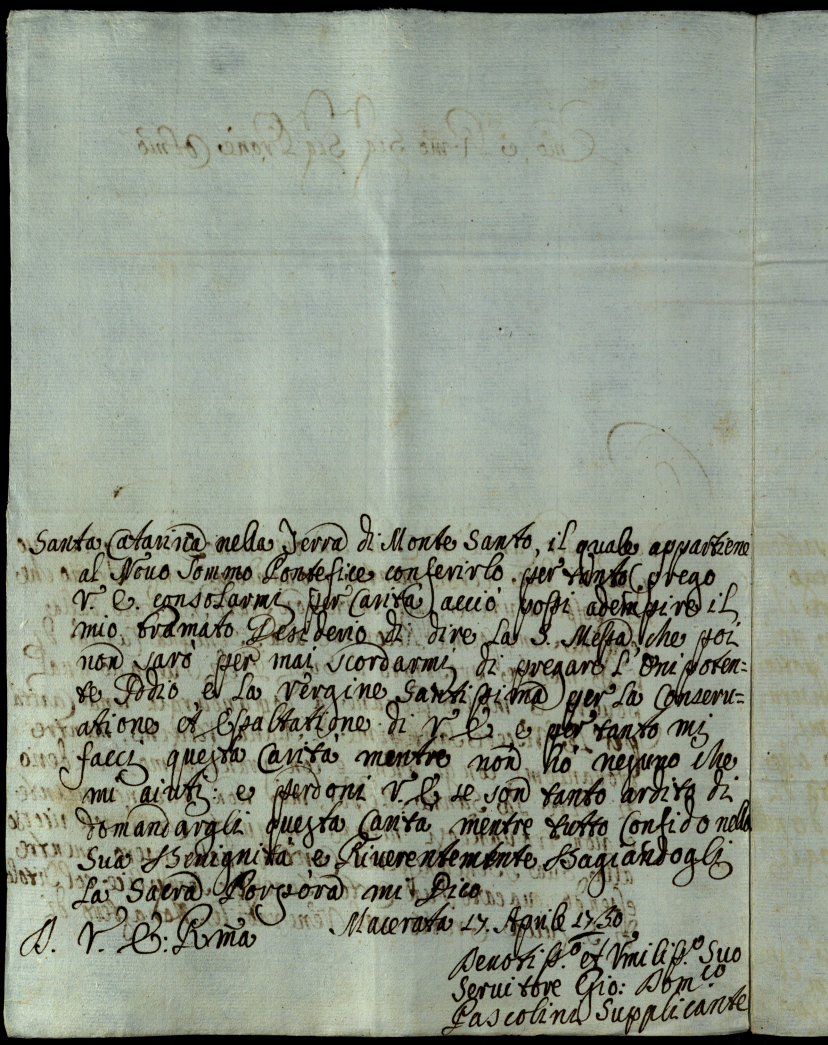 Santa Catarina nella Terra di Monte Santo, il quale appartiene
al Novo Sommo Pontefice conferirlo. per tanto prego
V. E. consolarmi per Carità acciò possi adempire il
mio bramato Desiderio di dire la S. Messa che poi
non sarò per mai scordarmi di pregare l'Onipoten=
te Iddio, e la Vergine Santissima per la Conserv=
atione et Essaltatione di V. E. e per tanto mi
facci questa Carità mentre non hò nessuno che
mi aiuti: e perdoni V. E. se son tanto ardito di
domandargli questa Carità mentre tutto Confido nella
Sua Benignità e Riverentemente Bagiandogli
la Sacra Porpora mi Dico
D. V. E: Rma Macerata 17. Aprile 1730
Devotiss.o et Vmiliss.o Suo
Servitore Gio: Dom.co
Pascolini Supplicante